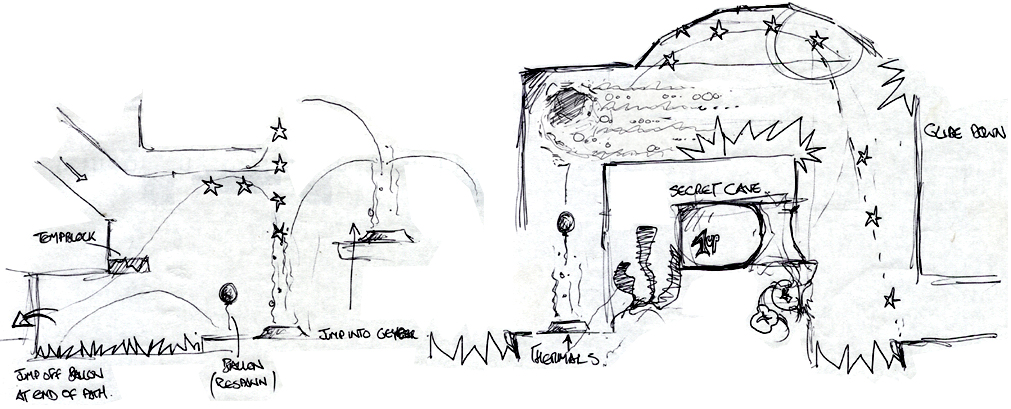 TEMPBLOCK
JUMP OFF BALLON
AT END OF PATH.
BALLON
(RESPAWN)
JUMP INTO GEYSER
THERMALS.
SECRET CAVE..
1up
GLIDE DOWN